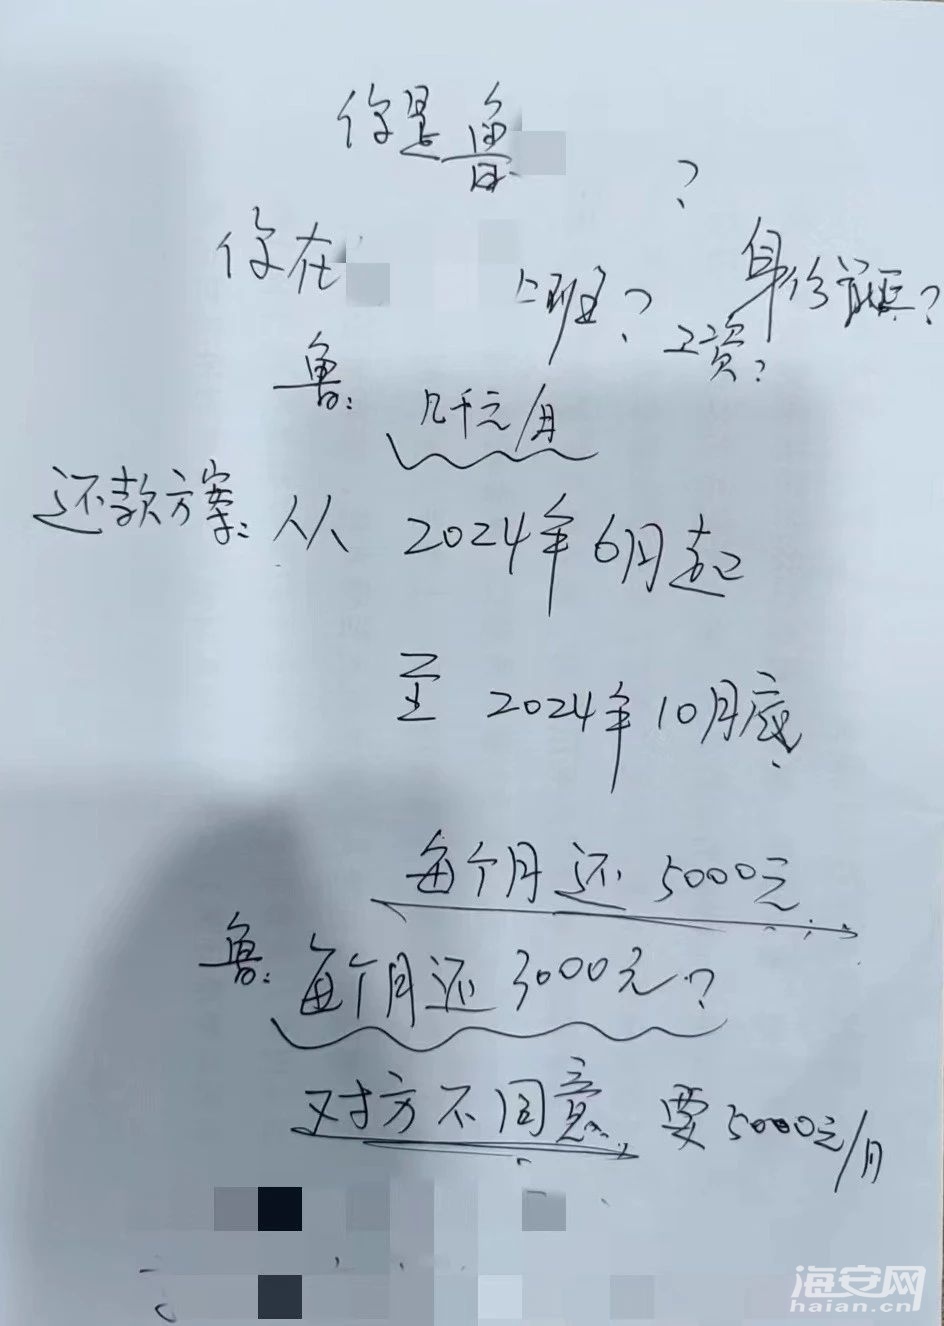 你是鲁
?
你在 上班? 身份证?
工资?
鲁: 几千元/月
还款方案: 从 2024年6月起
至 2024年10月底
每个月还 5000元
鲁: 每个月还 3000元?
对方不同意 要5000元/月
海安网
haian.cn